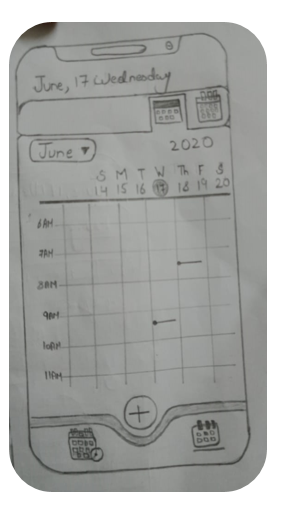 June, 17 Wednesday
June ▾
2020
S M T W Th F S
14 15 16 17 18 19 20
6AM
7AM
8AM
9AM
10AM
11AM